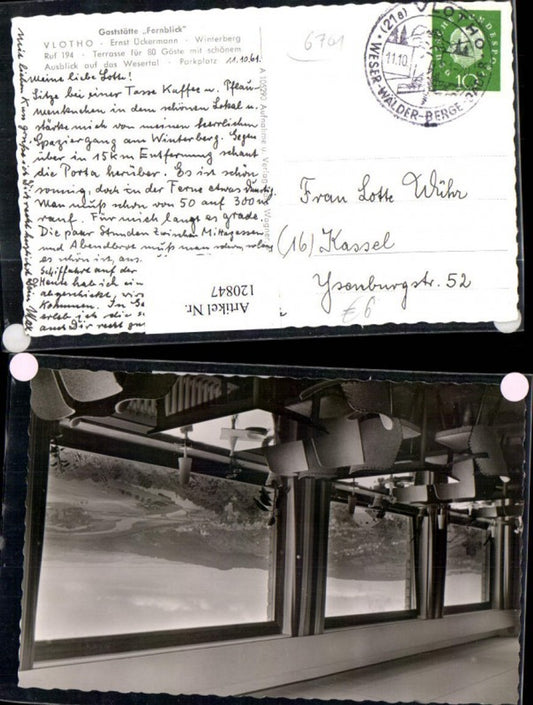 Gaststätte „Fernblick"
VLOTHO - Ernst Uckermann - Winterberg
Ruf 194 - Terrasse für 80 Gäste mit schönem
Ausblick auf das Wesertal - Parkplatz 11.10.61.
Meine liebe Lotte!
Sitze bei einer Tasse Kaffee u. Pflau-
menkuchen in dem schönen Lokal u.
stärke mich von meinen herrlichen
Spaziergang am Winterberg. Gegen
über in 15 km Entfernung schaut
die Porta herüber. Es ist schön
sonnig, doch in der Ferne etwas dunstig.
Man muß schon von 50 auf 300 m
rauf. Für mich langt es grade.
Die paar Stunden zwischen Mittagessen
und Abendbrot muß man sehn, solang
es schön ist, aus
Schiffahrt auf der
Heute hab ich ein
abgeschickt, wir
kommen. In
erleb ich die
auch Dir recht
A 10290 Aufnahme u. Verlag
Wagner
6701
(21a) VLOTHO
11.10.
WESER-WÄLDER-BERGE
DEUTSCHE BUNDESPOST
10
Frau Lotte Wühr
(16) Kassel
Ysenburgstr. 52
€6
Artikel Nr.
120847